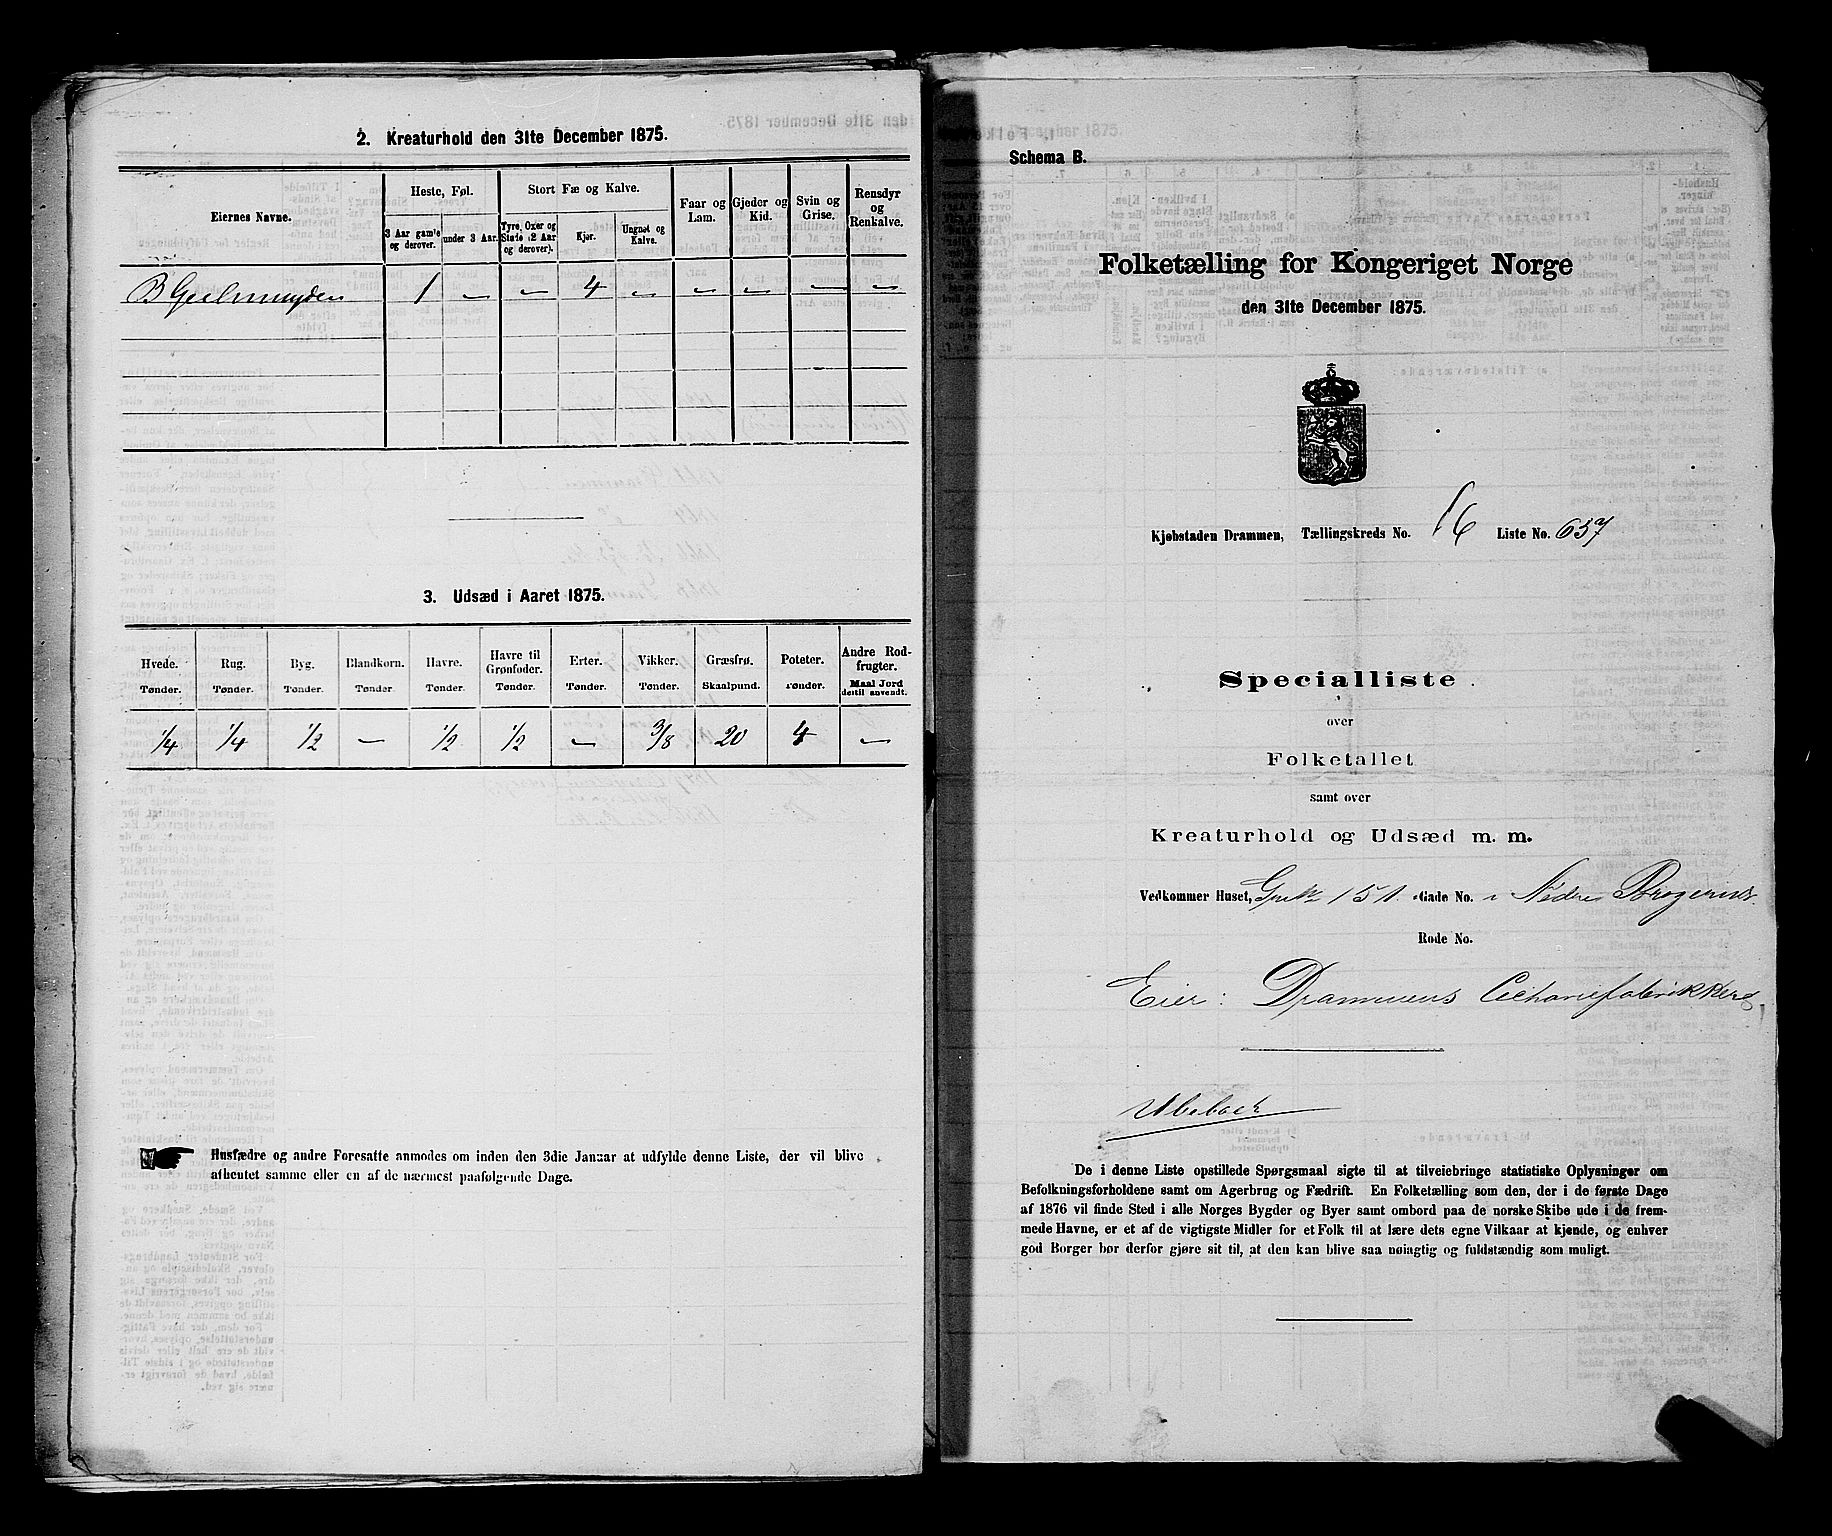 2. Kreaturhold den 31te December 1875.
Eiernes Navne.
Heste, Føl.
3 Aar gamle og derover.
under 3 Aar.
Stort Fæ og Kalve.
Tyre, Oxer og Stude (2 Aar og derover).
Kjør.
Ungnøt og Kalve.
Faar og Lam.
Gjeder og Kid.
Svin og Grise.
Rensdyr og Renkalve.
B Geelmuyden 1 – – 4 – – – – –
3. Udsæd i Aaret 1875.
Hvede. Rug. Byg. Blandkorn. Havre. Havre til Grønfoder. Erter. Vikker. Græsfrø. Poteter. Andre Rodfrugter.
Tønder. Tønder. Tønder. Tønder. Tønder. Tønder. Tønder. Tønder. Skaalpund. Tønder. Maal Jord dertil anvendt.
1/4 1/4 1/2 – 1/2 1/2 – 3/8 20 4 –
Husfædre og andre Foresatte anmodes om inden den 3die Januar at udfylde denne Liste, der vil blive
afhentet samme eller en af de nærmest paafølgende Dage.
Schema B.
Folketælling for Kongeriget Norge
den 31te December 1875.
Kjøbstaden Drammen, Tællingskreds No. 16 Liste No. 657
Specialliste
over
Folketallet
samt over
Kreaturhold og Udsæd m. m.
Vedkommer Huset, 151. Gade No. i Nedre
Rode No.
Eier: Drammens Cichoriefabrikker
Ubeboet
De i denne Liste opstillede Spørgsmaal sigte til at tilveiebringe statistiske Oplysninger om
Befolkningsforholdene samt om Agerbrug og Fædrift. En Folketælling som den, der i de første Dage
af 1876 vil finde Sted i alle Norges Bygder og Byer samt ombord paa de norske Skibe ude i de frem-
mede Havne, er et af de vigtigste Midler for et Folk til at lære dets egne Vilkaar at kjende, og enhver
god Borger bør derfor gjøre sit til, at den kan blive saa nøiagtig og fuldstændig som muligt.